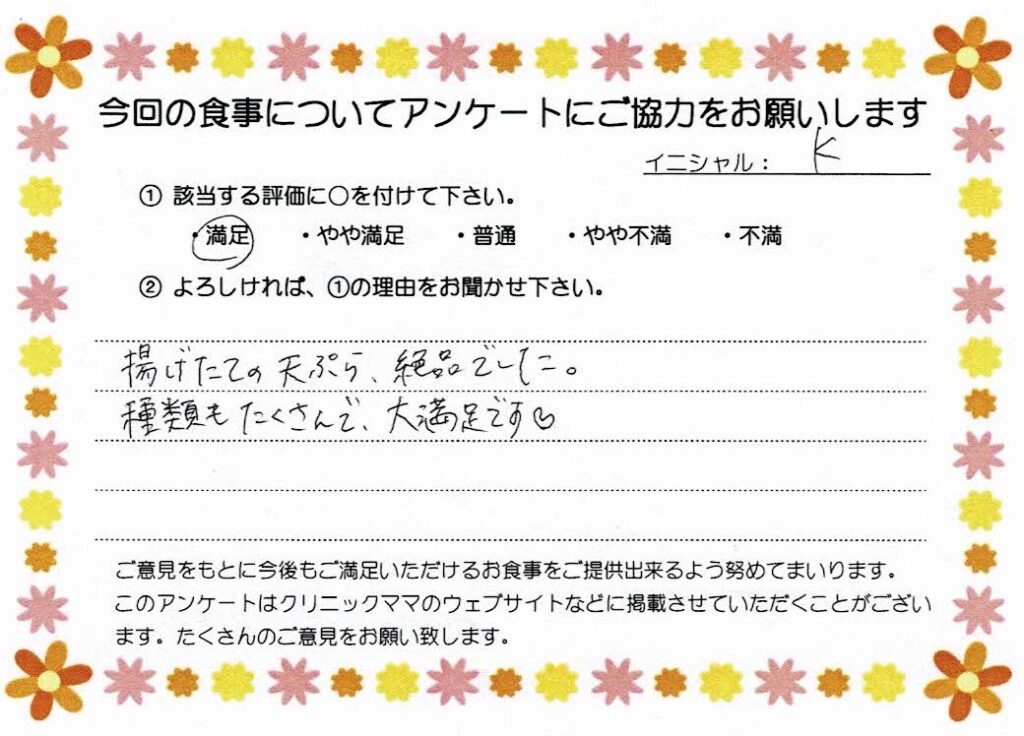 今回の食事についてアンケートにご協力をお願いします
イニシャル： K
① 該当する評価に○を付けて下さい。
・満足 ・やや満足 ・普通 ・やや不満 ・不満
② よろしければ、①の理由をお聞かせ下さい。
揚げたての天ぷら、絶品でした。
種類もたくさんで、大満足です♡
ご意見をもとに今後もご満足いただけるお食事をご提供出来るよう努めてまいります。
このアンケートはクリニックママのウェブサイトなどに掲載させていただくことがござい
ます。たくさんのご意見をお願い致します。